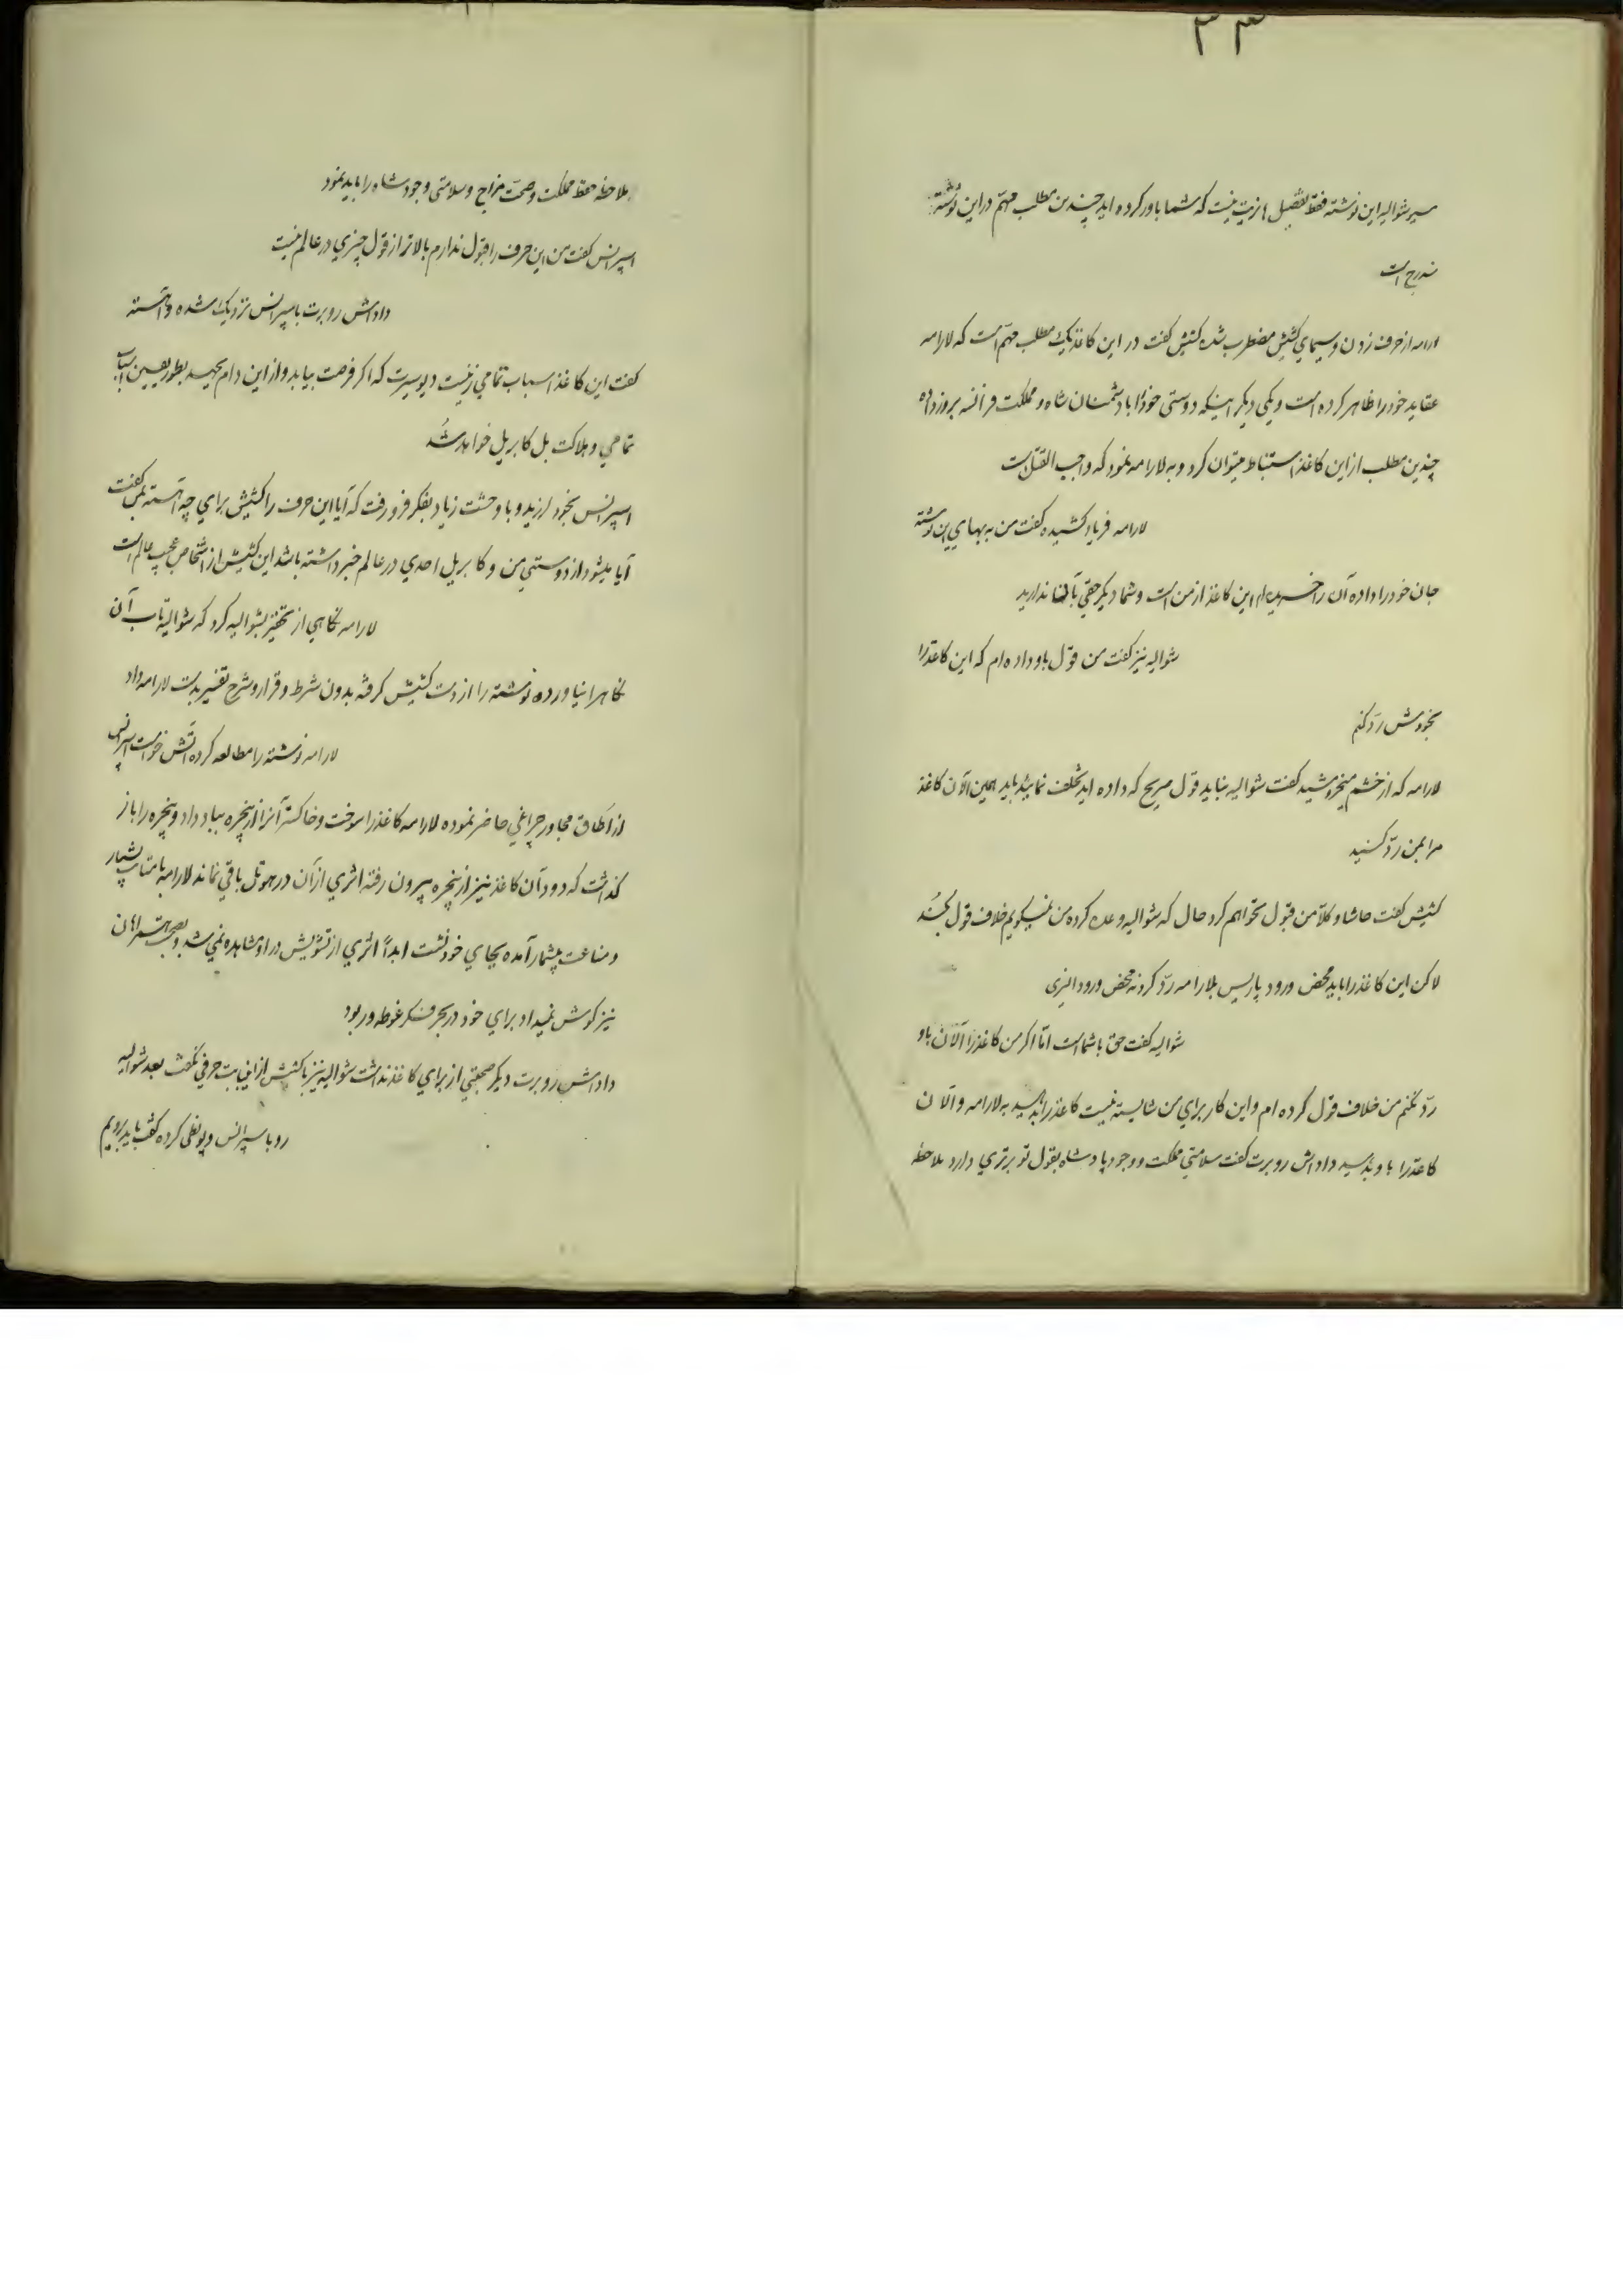 ۳۳
سیر شوالیه این نوشته فقط تفصیل هازیت نیست که شما باور کرده اید چندین مطلب مهم در این نوشته
مندرج است
لارامه از حرف زدن و سیمای کشیش مضطرب شده کشیش گفت در این کاغذ یک مطلب مهم است که لارامه
عقاید خود را ظاهر کرده است و یکی دیگر اینکه دوستی خود را با دشمنان شاه و مملکت فرانسه بروز داده
چندین مطلب از این کاغذ استنباط میتوان کرد و به لارامه نمود که واجب القتل است
لارامه فریاد کشیده گفت من به بهای این نوشته
جان خود را داده آن را خریده‌ام این کاغذ از من است و شما دیگر حقی بآن ندارید
شوالیه نیز گفت من قول باو داده ام که این کاغذ را
بخودش رد کنم
لارامه که از خشم میخروشید گفت شوالیه نباید قول صریح که داده اید تخلف نمایید باید همین الآن کاغذ
مرا بمن رد کنید
کشیش گفت حاشا و کلا من قبول نخواهم کرد حال که شوالیه وعده کرده من نمیگویم خلاف قول بکند
لاکن این کاغذ را باید محض ورود پاریس بلارامه رد کرد نه محض ورود
شوالیه گفت حق با شما است اما اگر من کاغذ را الآن باو
رد نکنم من خلاف قول کرده ام و این کار برای من شایسته نیست کاغذ را بدهید به لارامه و الآن
کاغذ را باو بدهید داداش روبرت گفت سلامتی مملکت و وجود پادشاه بقول تو برتری دارد ملاحظه
ملاحظه حفظ مملکت و صحت مزاج و سلامتی وجود شاه را باید نمود
اسپرانس گفت من این حرف را قبول ندارم بالاتر از قول چیزی در عالم نیست
داداش روبرت باسپرانس نزدیک شده و آهسته
گفت این کاغذ اسباب تمامی زنیست دیو سیرت که اگر فرصت بیابد و از این دام بجهد بطور یقین اسباب
تمامی و هلاکت بل کابریل خواهد شد
اسپرانس بخود لرزید و با وحشت زیاد بفکر فرو رفت که آیا این حرف را کشیش برای چه آهسته بمن گفت
آیا میشود از دوستی من و کابریل احدی در عالم خبر داشته باشد این کشیش از اشخاص عجیب عالم است
لارامه نگاهی از تحقیر بشوالیه کرد که شوالیه تاب آن
نگاه را نیاورده نوشته را از دست کشیش گرفته بدون شرط و قرار و شرح تفسیر بدست لارامه داد
لارامه نوشته را مطالعه کرده آتش خواست اسپرانس
از اطاق مجاور چراغی حاضر نموده لارامه کاغذ را سوخت و خاکستر آنرا از پنجره بباد داد و پنجره را باز
گذاشت که دود آن کاغذ نیز از پنجره بیرون رفته اثری از آن در هوتل باقی نماند لارامه با متانت بسیار
و مناعت بیشمار آمده بجای خود نشست ابداً اثری از تشویش در او مشاهده نمی شد و بصحبت همسران
نیز گوش نمیداد برای خود در بحر فکر غوطه ور بود
داداش روبرت دیگر صحبتی از برای کاغذ نداشت شوالیه نیز با کشیش از این بابت حرفی نگفت بعد شوالیه
رو باسپرانس و پونطی کرده گفت باید برویم